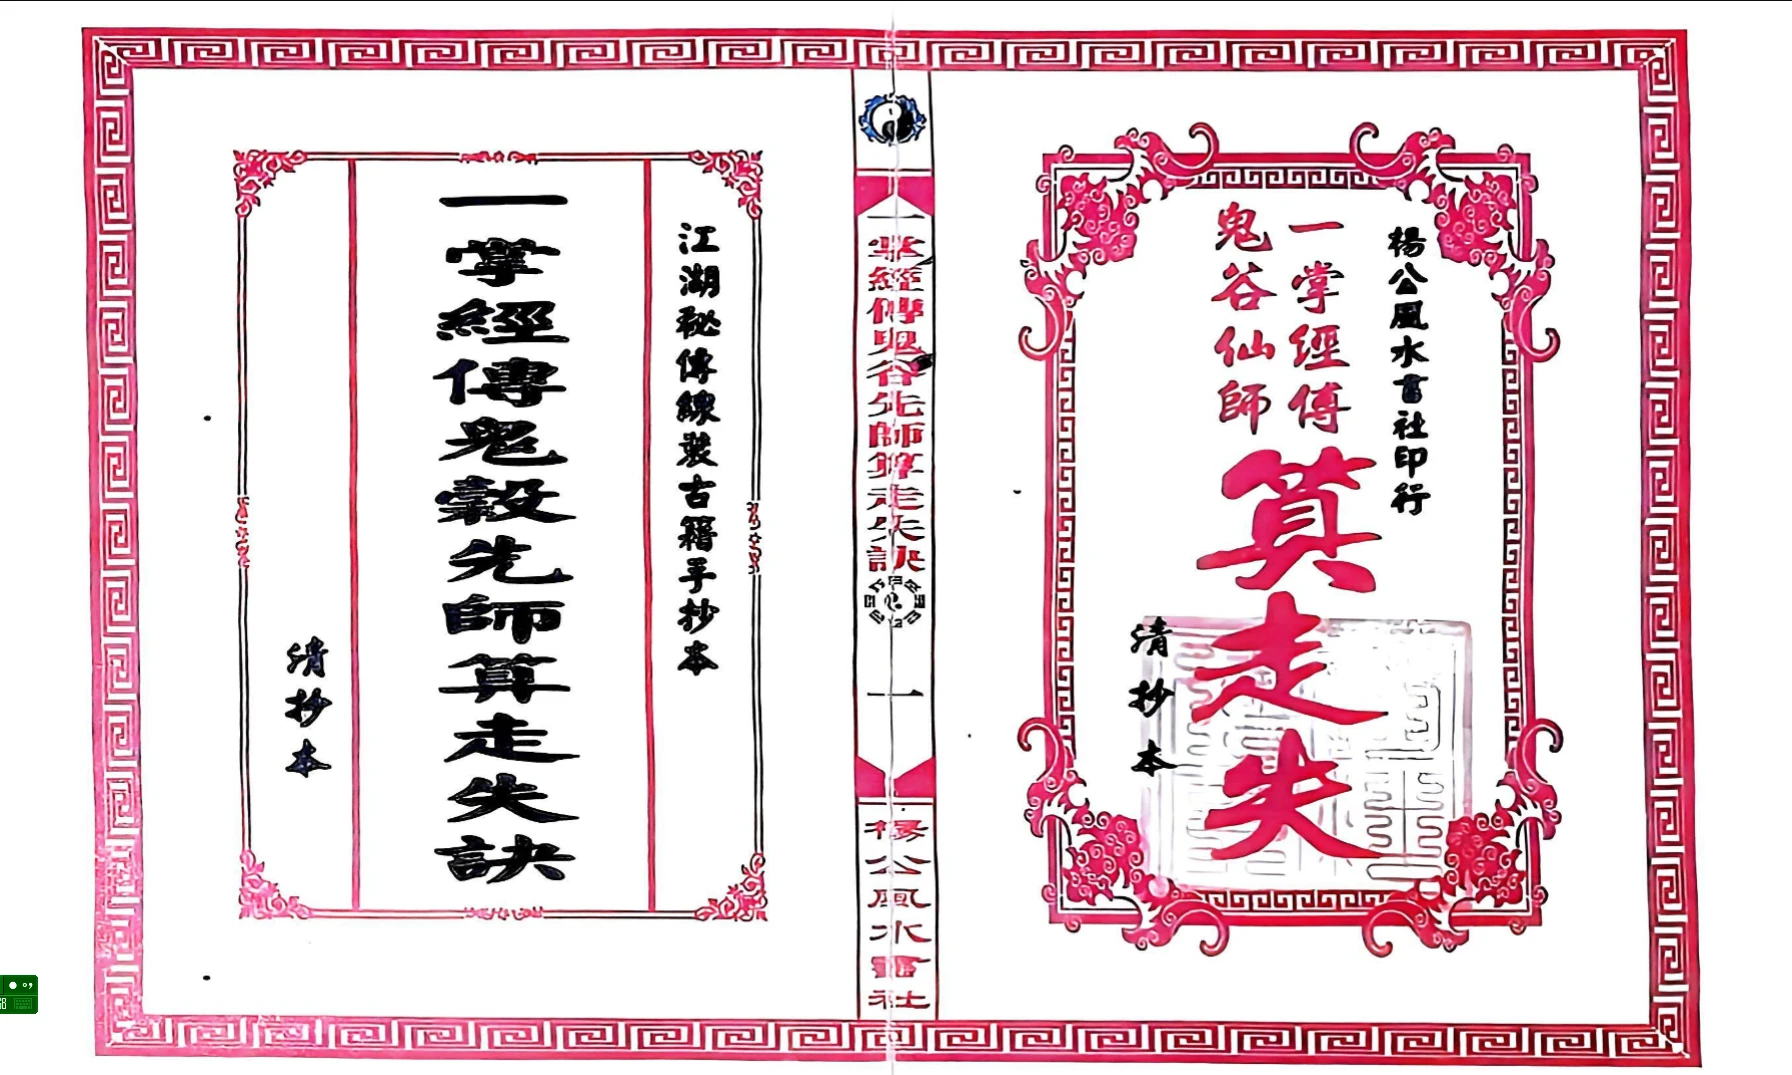 楊公風水書社印行
一掌經傳
鬼谷仙師
算走失
清抄本
一掌經傳鬼谷先師算走失訣
一
楊公風水書社
江湖秘傳線裝古籍手抄本
一掌經傳鬼穀先師算走失訣
清抄本